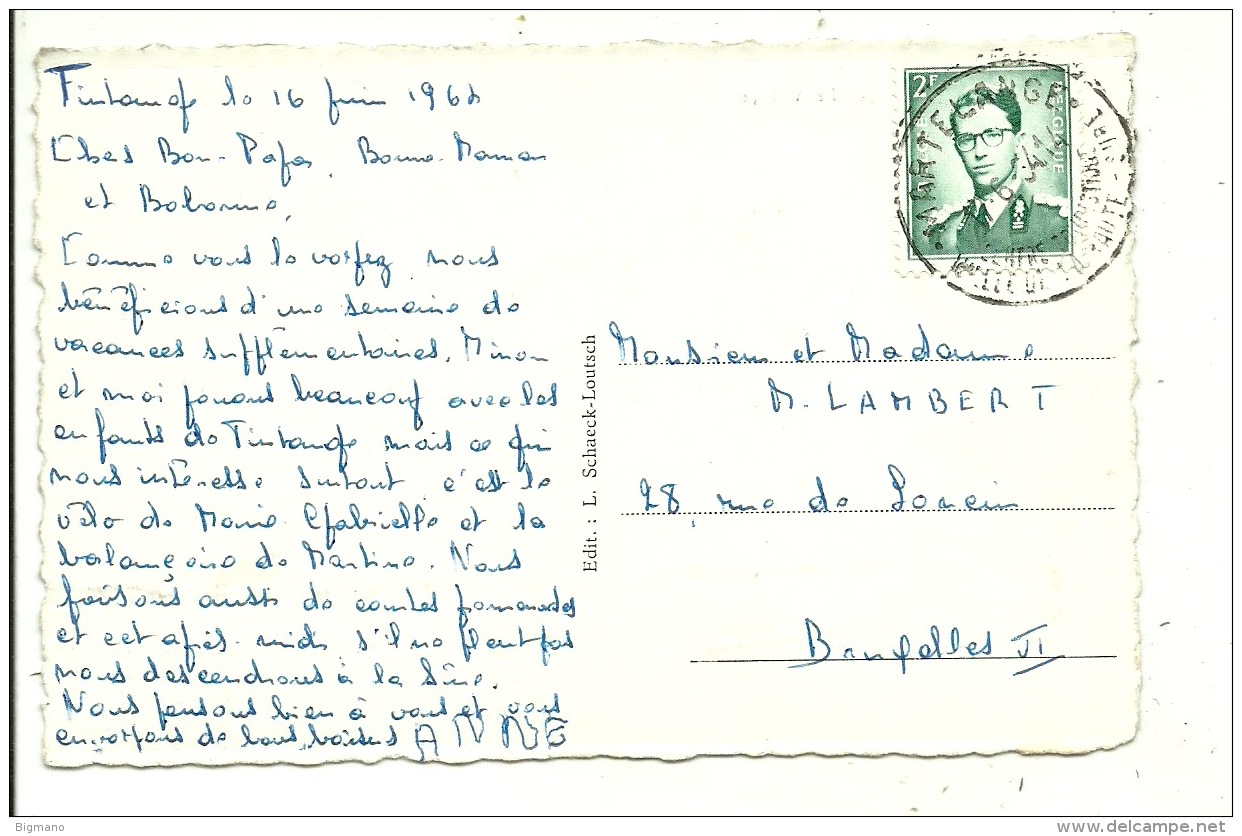 Tintange le 16 juin 1964
Chers Bon-Papa, Bonne-Maman
et Bobonne,
Comme vous le voyez nous
bénéficions d'une semaine de
vacances supplémentaires. Minou
et moi jouons beaucoup avec les
enfants de Tintange mais ce qui
nous intéresse surtout c'est le
vélo de Marie-Gabrielle et la
balançoire de Martine. Nous
faisons aussi de courtes promenades
et cet après-midi s'il ne pleut pas
nous descendrons à la Sûre.
Nous pensons bien à vous et vous
envoyons de bons baisers ANNE
Edit. : L. Schaeck-Loutsch
2F
BELGIQUE
MARTELANGE
CENTRE
HAUTE-SURE
Monsieur et Madame
M. LAMBERT
28, rue de
Bruxelles VI
Bigmano
www.delcampe.net